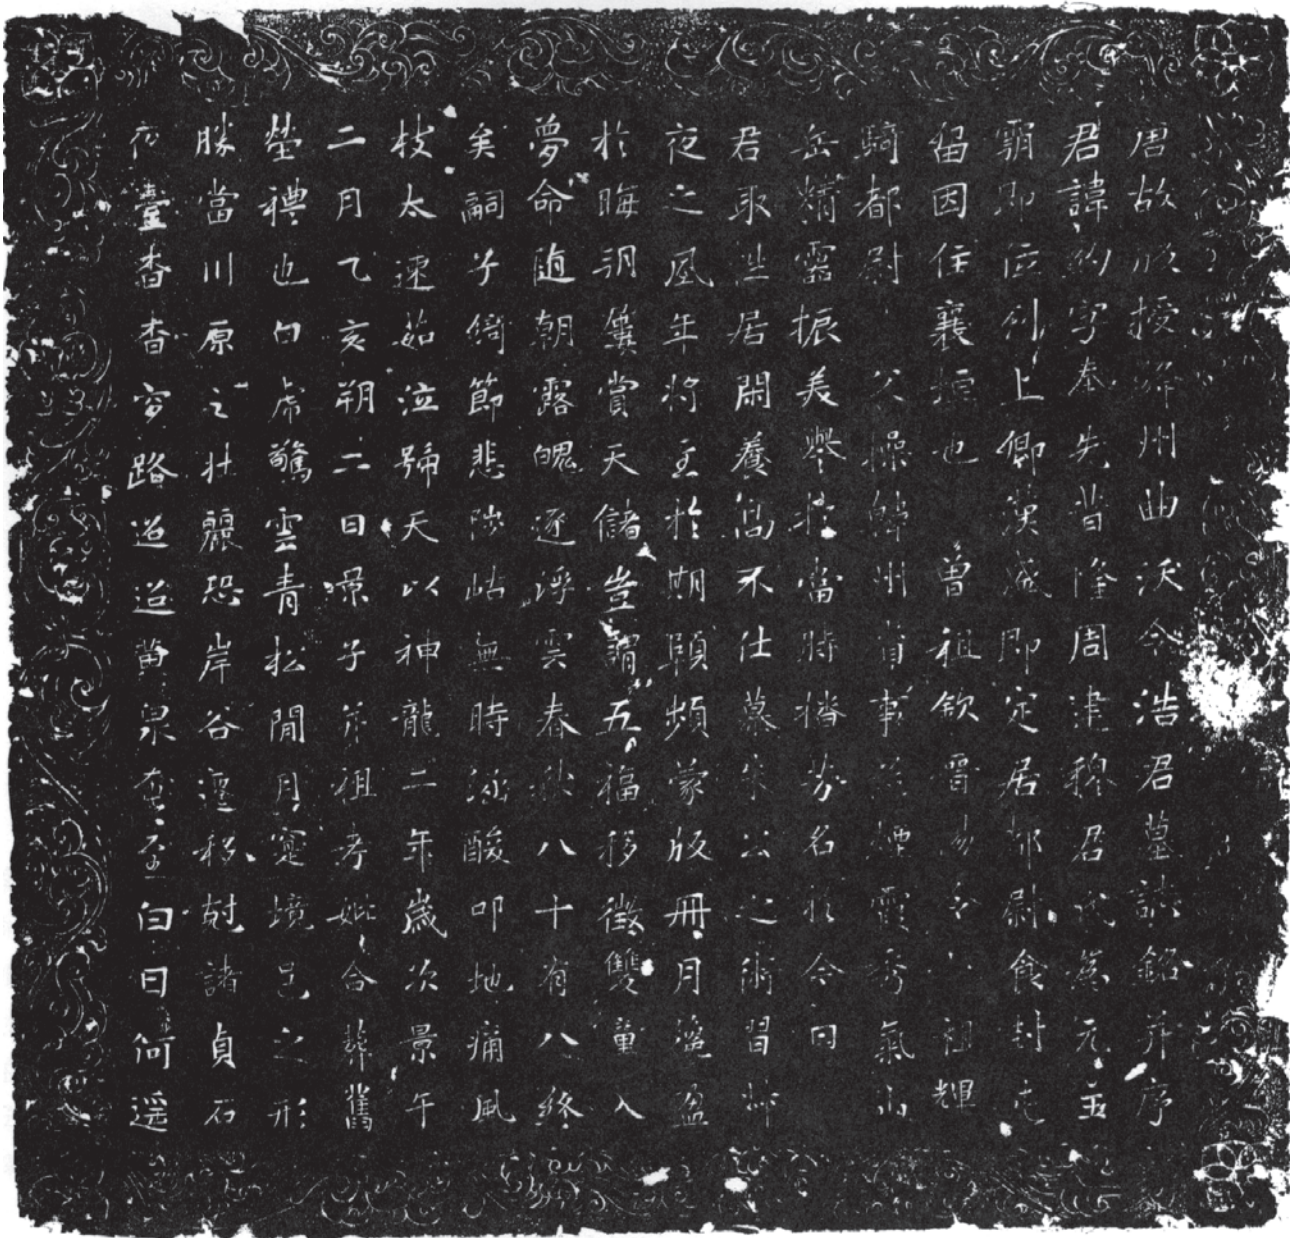 唐故版授絳州曲沃令浩君墓誌銘并序
君諱約字奉先昔隆周建穆君代為元
霸即位列上卿漢成即定居都尉食封
留因住襄垣也 曾祖欽晉 令 祖輝
騎都尉 父操絳州 事 煙霞秀氣
岳精靈振美譽於當時播芳名於今日
君取性居閑養高不仕慕朱公之術習
夜之風年將至於期頤頻蒙版冊月滿盈
於晦明 賞天儲豈謂五福移徵雙童入
夢命隨朝露魄逐浮雲春秋八十有八終
矣嗣子 節悲陟岵無時 酸叩地痛風
枝太速茹泣號天以神龍二年歲次景午
二月乙亥朔二日景子 祖考妣合葬舊
塋禮也白虎驚雲青松間月 境邑之形
勝當川原之壯麗恐岸谷遷移尅諸貞石
夜臺杳杳 路迢迢黃泉 白日何遥